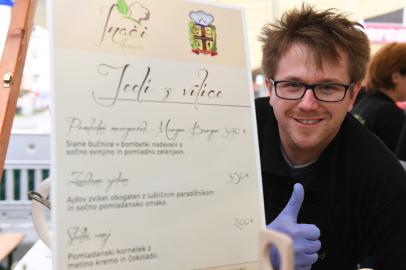 Inači
Jedi s vilice
Pomladni navigatek - Morgan Burger 3,50 €
Slane bučnice v bombetki nadevani s
sočno svinjino in pomladno zelenjavo.
3,50€
Ajdov zviket obogaten z luštičnim paradižnikom
in sočno pomladansko omako.
Sladki 2,00€
Pomladanski kornetek z
metino kremo in čokolado.